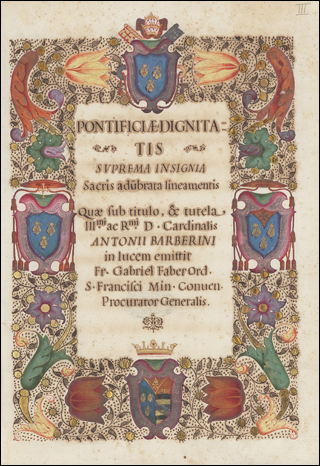 III
PONTIFICIÆ DIGNITA-
TIS
SVPREMA INSIGNIA
Sacris adũbrata lineamentis
Quæ sub titulo, & tutela,
Illmi ac Rmi D · Cardinalis
ANTONII BARBERINI
in lucem emittit
Fr· Gabriel Faber Ord ·
S · Francisci Min · Conuen ·
Procurator Generalis.